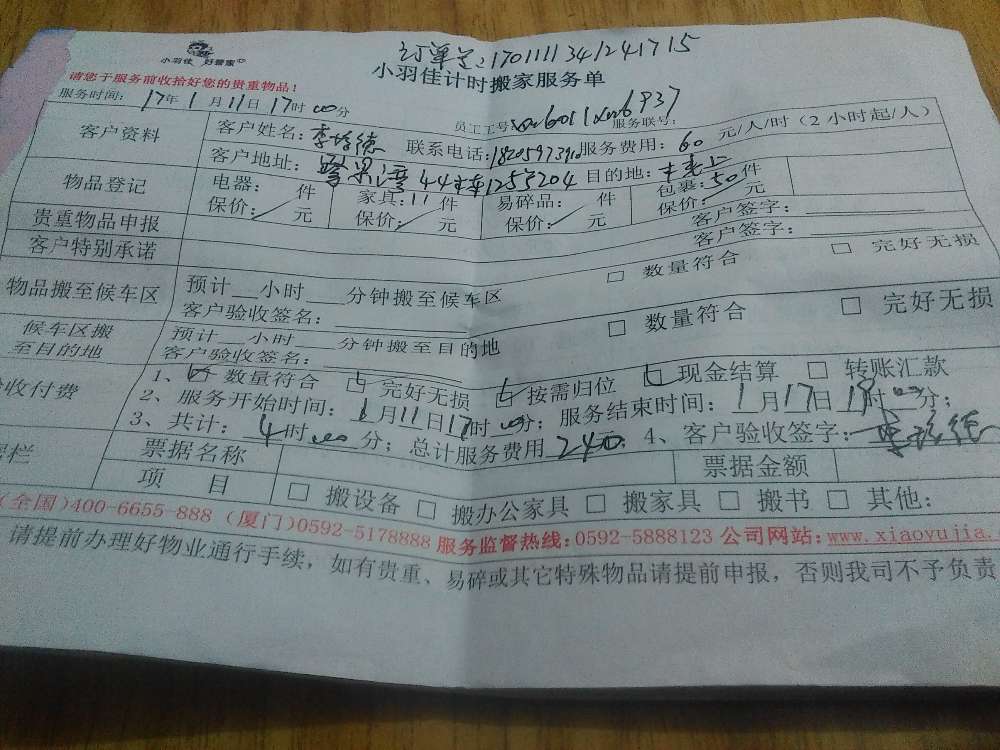 小羽佳 好管家
订单号:1701111341241715
小羽佳计时搬家服务单
请您于服务前收拾好您的贵重物品!
服务时间: 17年1月11日17时00分 员工工号 服务联号:
客户资料 客户姓名: 联系电话: 服务费用: 60 元/人/时(2小时起/人)
客户地址: 目的地:
物品登记 电器: 件 家具: 11件 易碎品: 件 包裹: 50件
保价: 元 保价: 元 保价: 元 保价: 元
贵重物品申报 客户签字:
客户特别承诺 客户签字:
物品搬至候车区 预计 小时 分钟搬至候车区 □ 数量符合 □ 完好无损
客户验收签名:
候车区搬至目的地 预计 小时 分钟搬至目的地 □ 数量符合 □ 完好无损
客户验收签名:
收付费 1、☑ 数量符合 ☑ 完好无损 ☑ 按需归位 ☑ 现金结算 □ 转账汇款
2、服务开始时间: 1月11日17时00分; 服务结束时间: 1月17日19时00分;
3、共计: 4时00分; 总计服务费用 240 4、客户验收签字:
栏 票据名称 票据金额
项 目 □ 搬设备 □ 搬办公家具 □ 搬家具 □ 搬书 □ 其他:
(全国)400-6655-888 (厦门)0592-5178888 服务监督热线:0592-5888123 公司网站:www.xiaoyujia.
请提前办理好物业通行手续,如有贵重、易碎或其它特殊物品请提前申报,否则我司不予负责